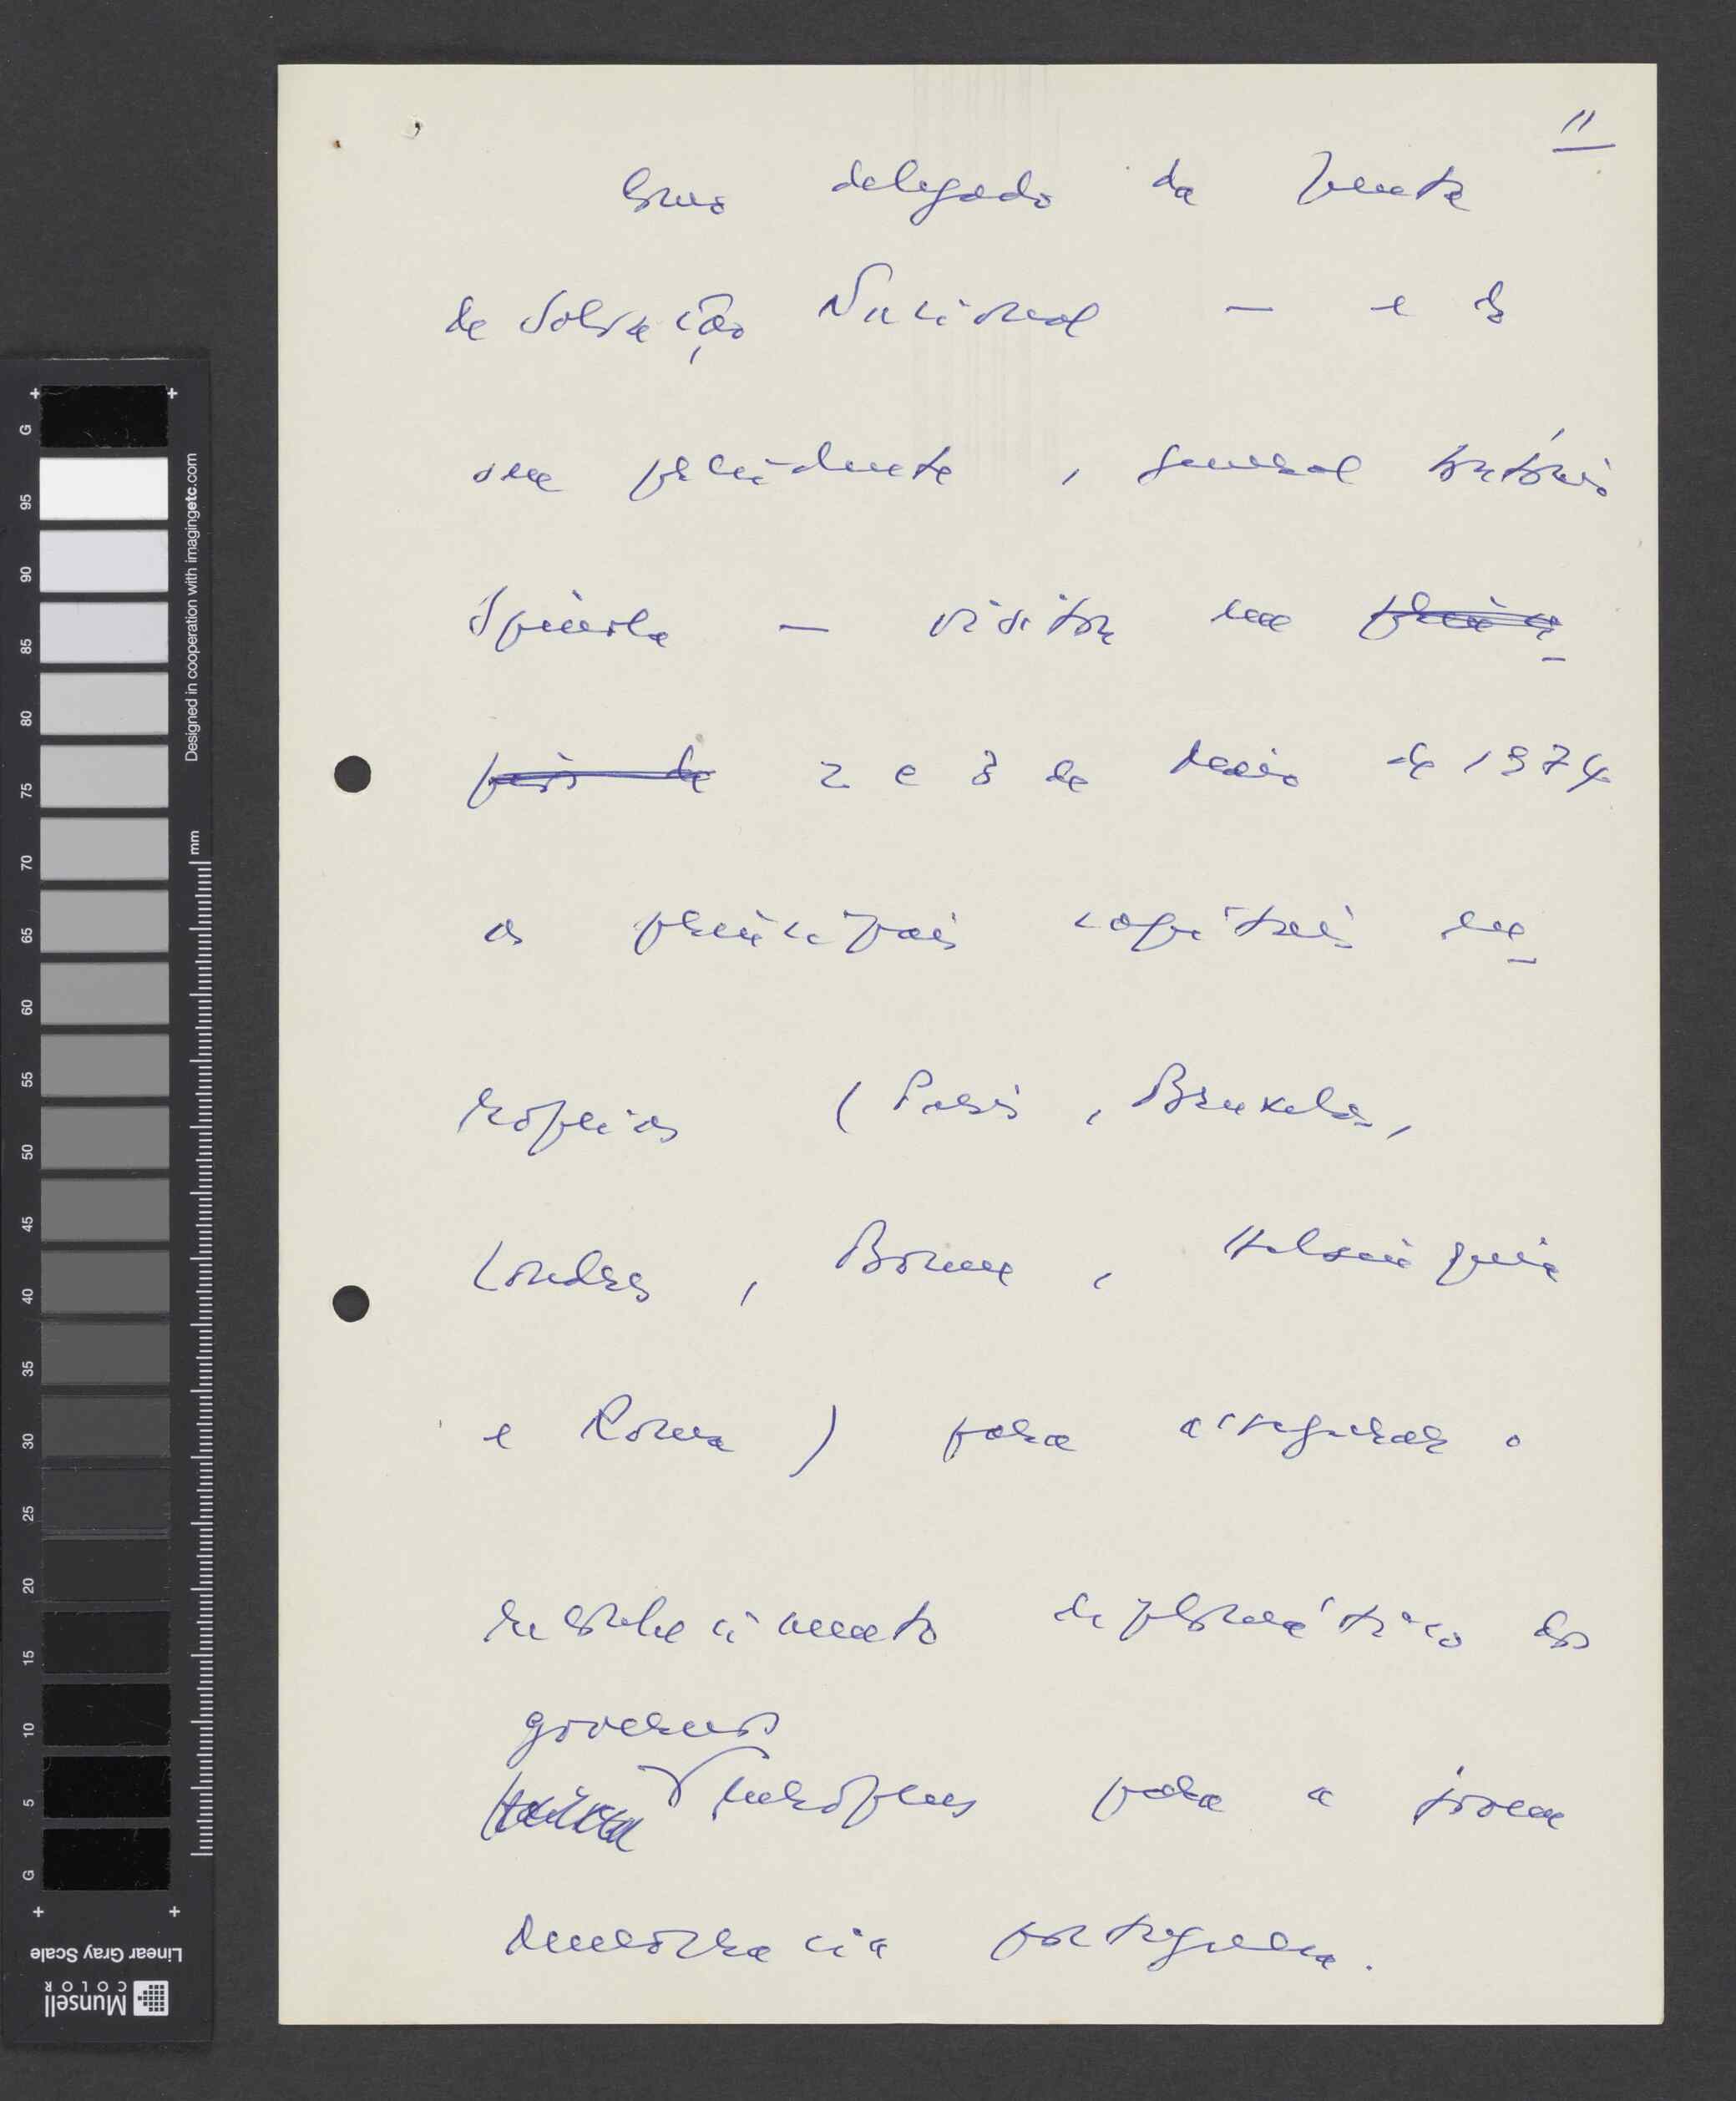 11
Como delegado da Junta
de Salvação Nacional — e do
seu presidente, general António
Spínola — visitou em
2 e 3 de Maio de 1974
as principais capitais eu-
ropeias (Paris, Bruxelas,
Londres, Bona, Helsínquia
e Roma) para assegurar o
reconhecimento diplomático dos
governos
europeus para a jovem
democracia portuguesa.
G
95
90
85
80
75
70
65
60
55
50
45
40
35
30
25
20
15
10
5
G
Designed in cooperation with imagingetc.com
mm
Linear Gray Scale
Munsell
COLOR